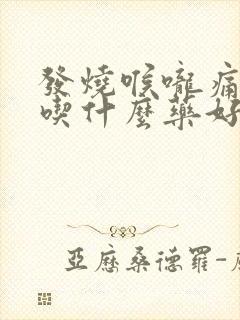 發燒喉嚨痛
喫什麼藥好
亞歷桑德羅-